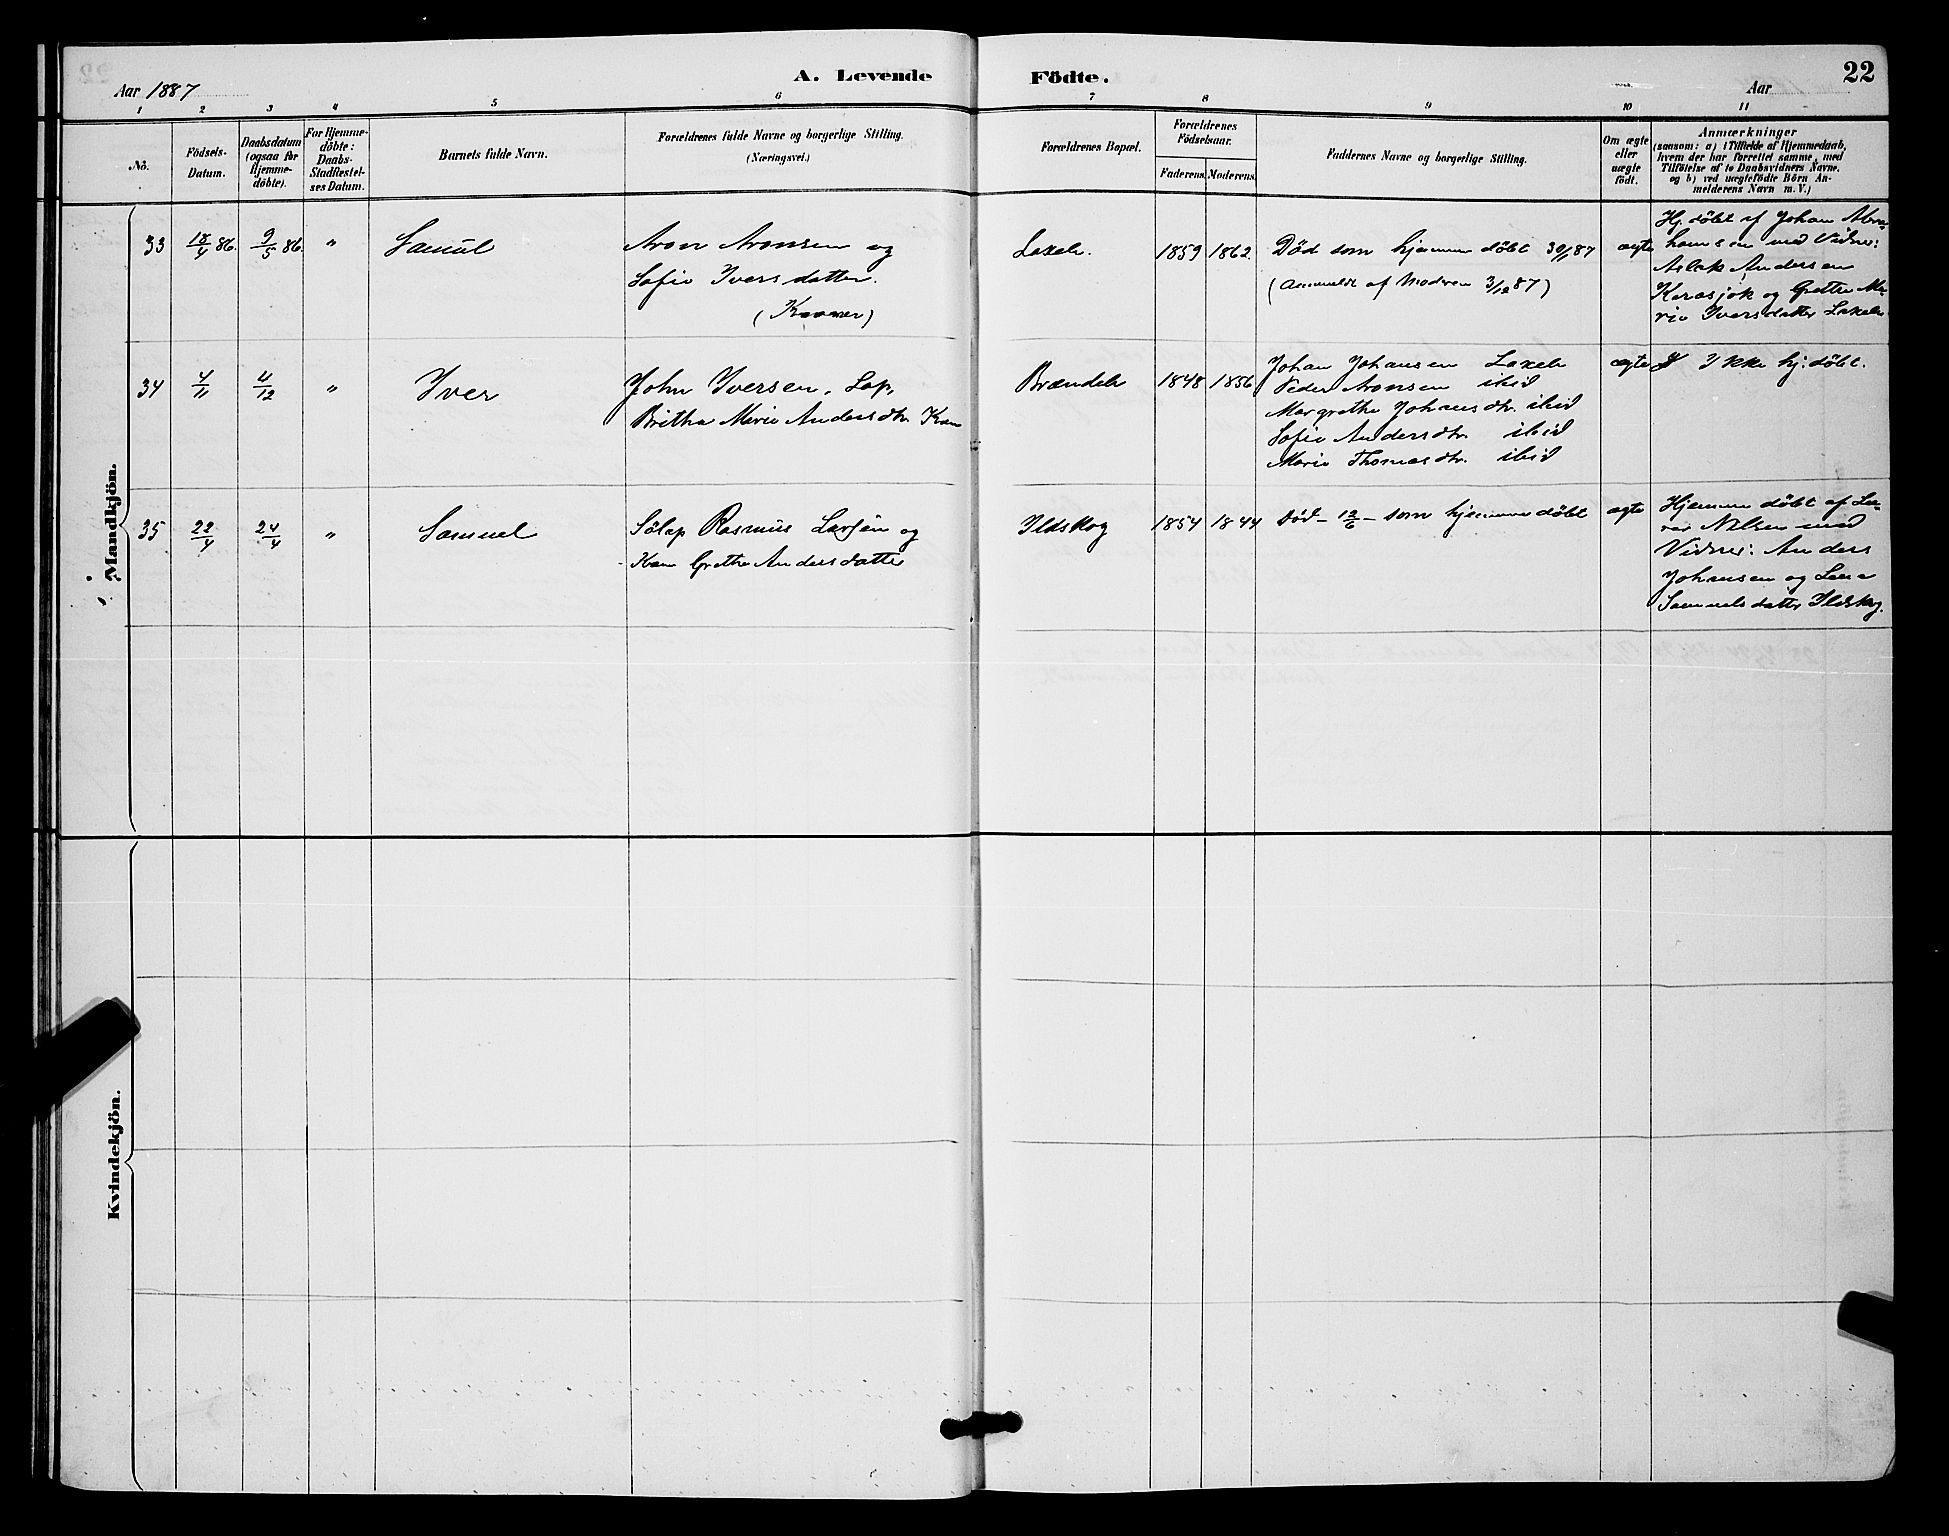 22
A. Levende Födte.
Aar 1887
Aar
1 2 3 4 5 6 7 8 9 10 11
No.
Födsels-
Datum.
Daabsdatum
(ogsaa for
Hjemme-
döbte).
For Hjemme-
döbte:
Daabs-
Stadfæstel-
ses Datum.
Barnets fulde Navn.
Forældrenes fulde Navne og borgerlige Stilling.
(Næringsvei.)
Forældrenes Bopæl.
Forældrenes
Födselsaar.
Faderens.
Moderens.
Faddernes Navne og borgerlige Stilling.
Om ægte
eller
uægte
födt.
Anmærkninger
(saasom: a) i Tilfælde af Hjemmedaab,
hvem der har forrettet samme, med
Tilföielse af to Daabsvidners Navne.
og b) ved uægtefödte Börn An-
melderens Navn m. V.)
Mandkjön.
33
18/4 86.
9/5 86.
"
Samul
Aron Aronsen og
Sofie Iversdatter.
Laxelv.
1859
1862
Död som hjemmedöbt 30/1 87
(Anmeldt af Moderen 3/12 87)
ægte
Hj. döbt af Johan Abra-
hamsen med Vidner:
Aslak Andersen
Karasjok og Grethe Ma-
rie Iversdatter Laxelv
34
4/11
4/12
"
Iver
John Iversen, Lap,
Britha Marie Andersdtr. Kvæn
Brændelv
1848
1856
Johan Johansen Laxelv
Peder Aronsen ibid
Margrethe Johansdtr. ibid
Sofie Andersdtr. ibid
Marie Thomasdtr. ibid
ægte
Ikke hj. döbt.
35
22/4
24/4
"
Samuel
Sölap Rasmus Larsen og
Kvæn Grethe Andersdatter
Ildskog
1854
1844
Död - 12/6 - som hjemmedöbt
ægte
Hjemmedöbt af La-
rs Nilsen med
Vidner: Anders
Johansen og Lena
Samuelsdatter Ildskog.
Kvindekjön.